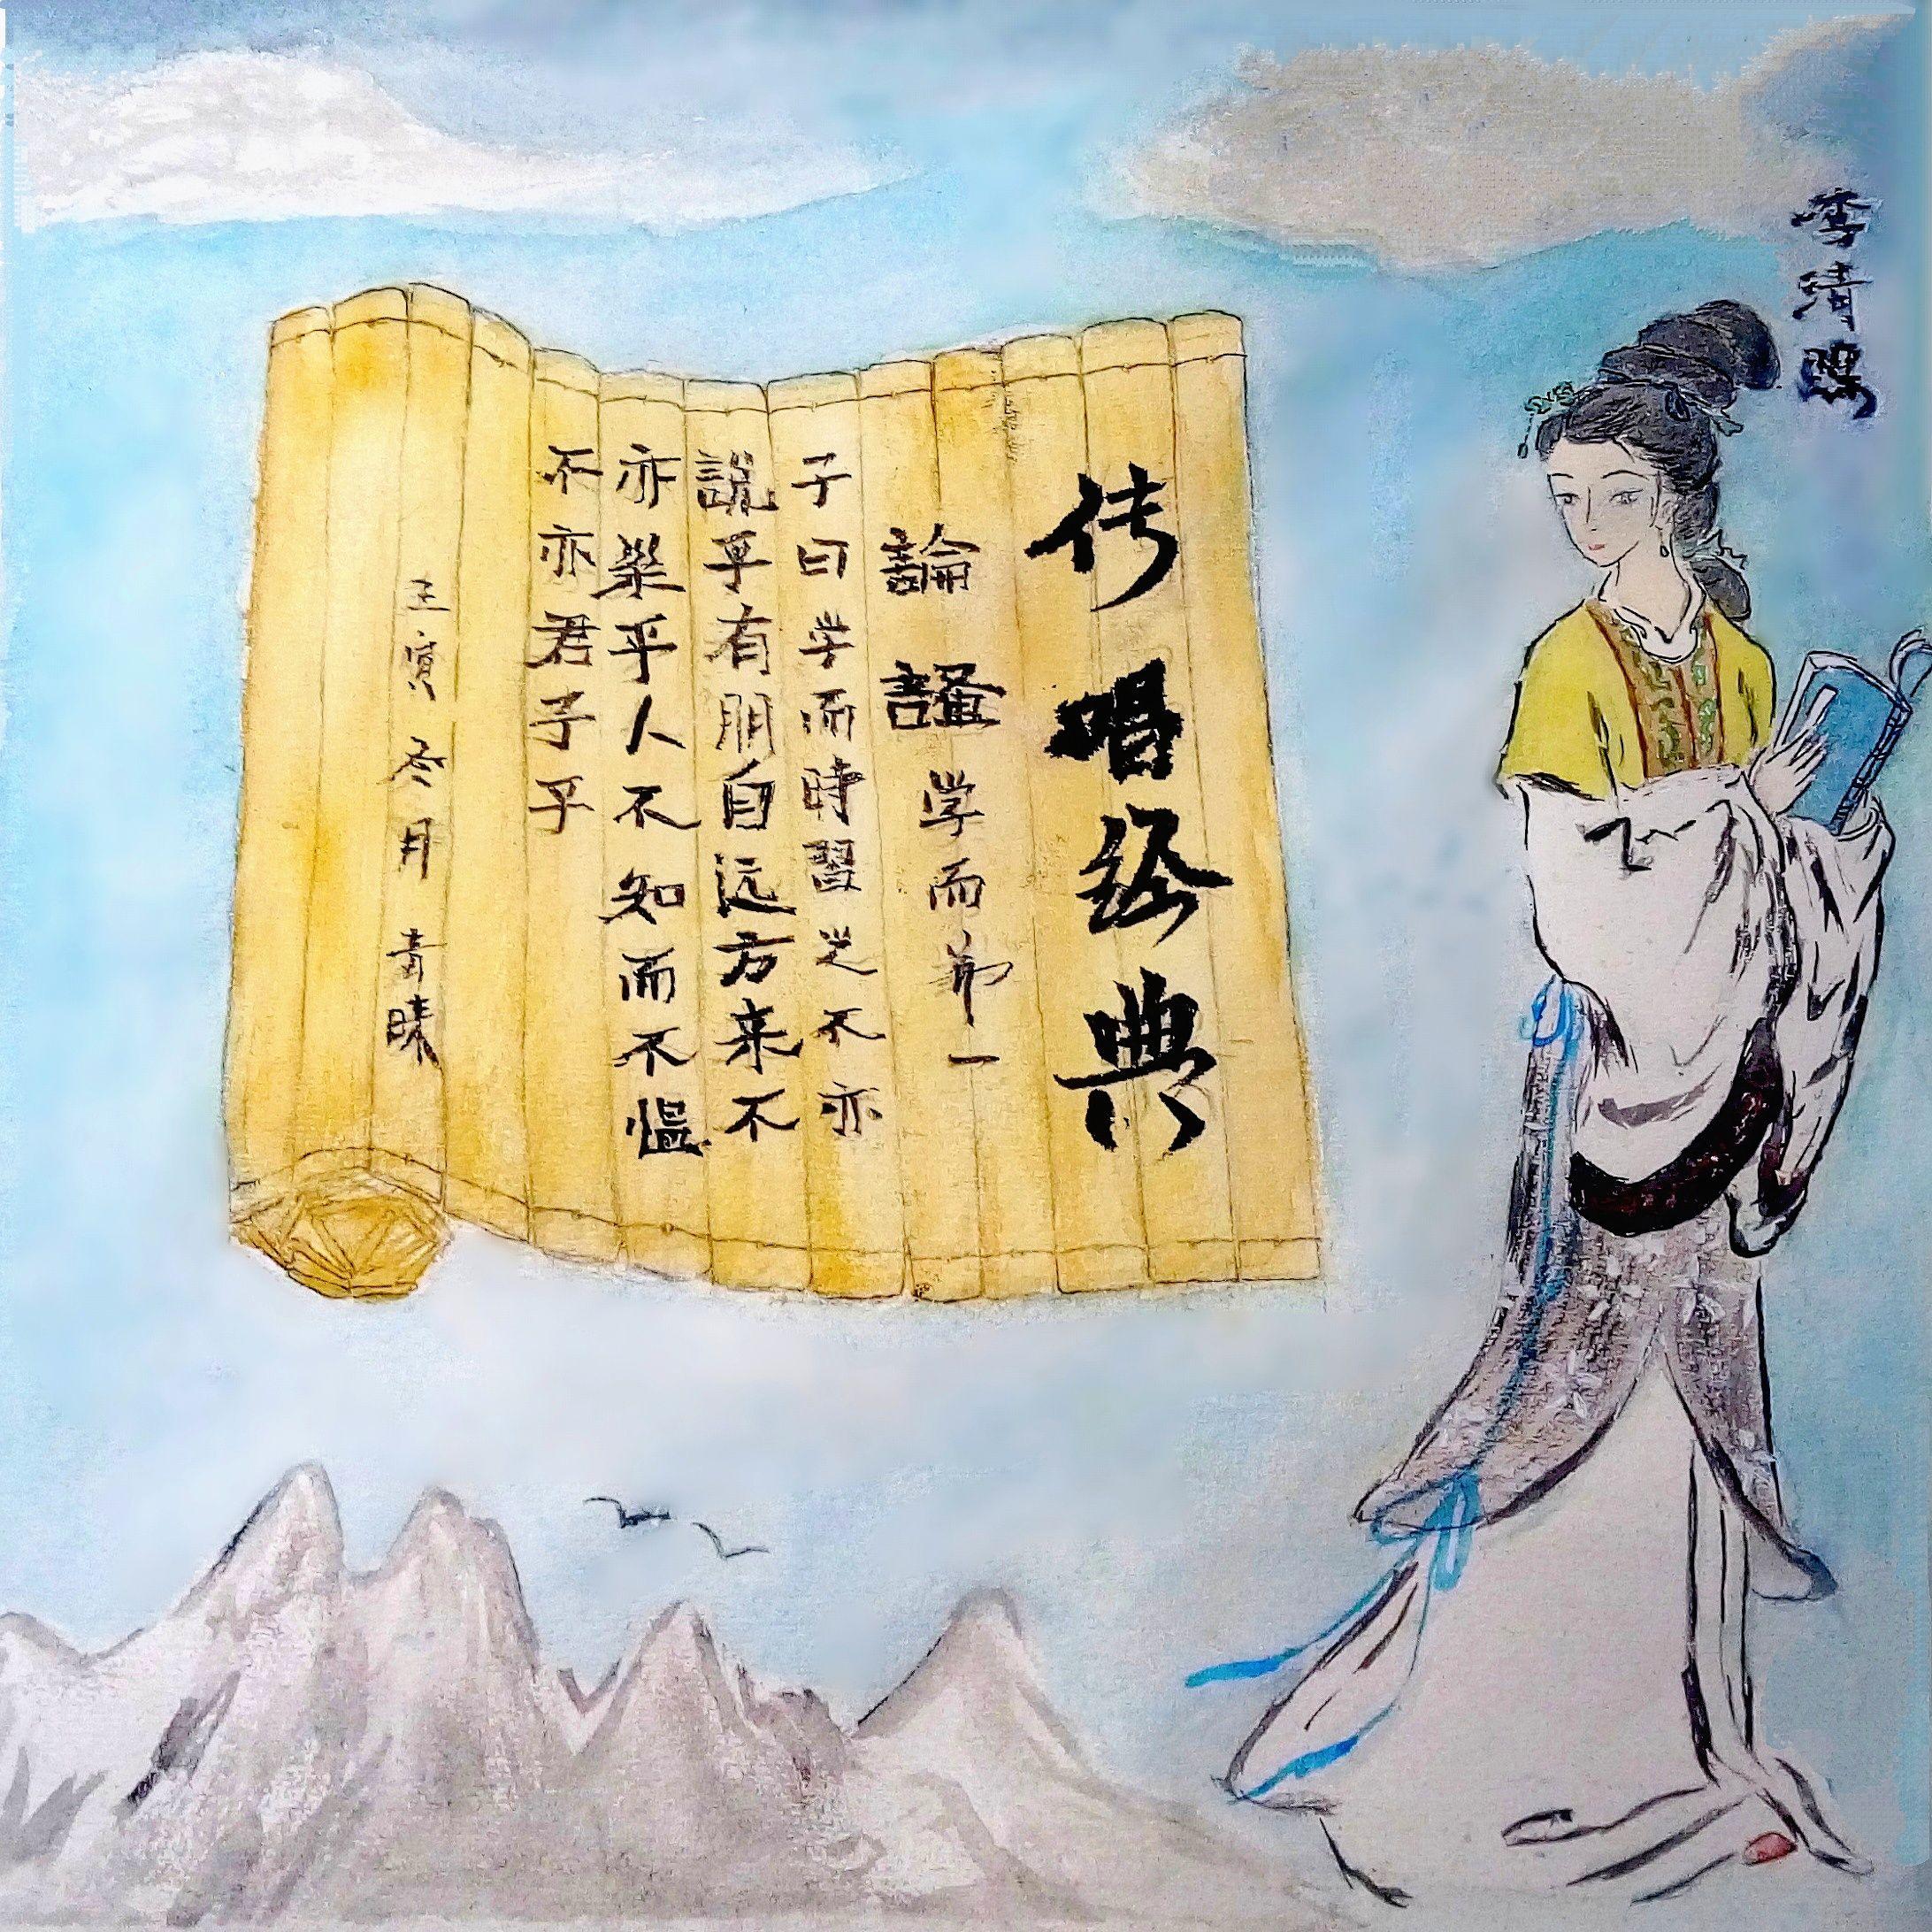 李清照
传唱经典
論語 学而第一
子曰学而時習之不亦
説乎有朋自远方来不
亦樂乎人不知而不愠
不亦君子乎
壬寅冬月 青晴